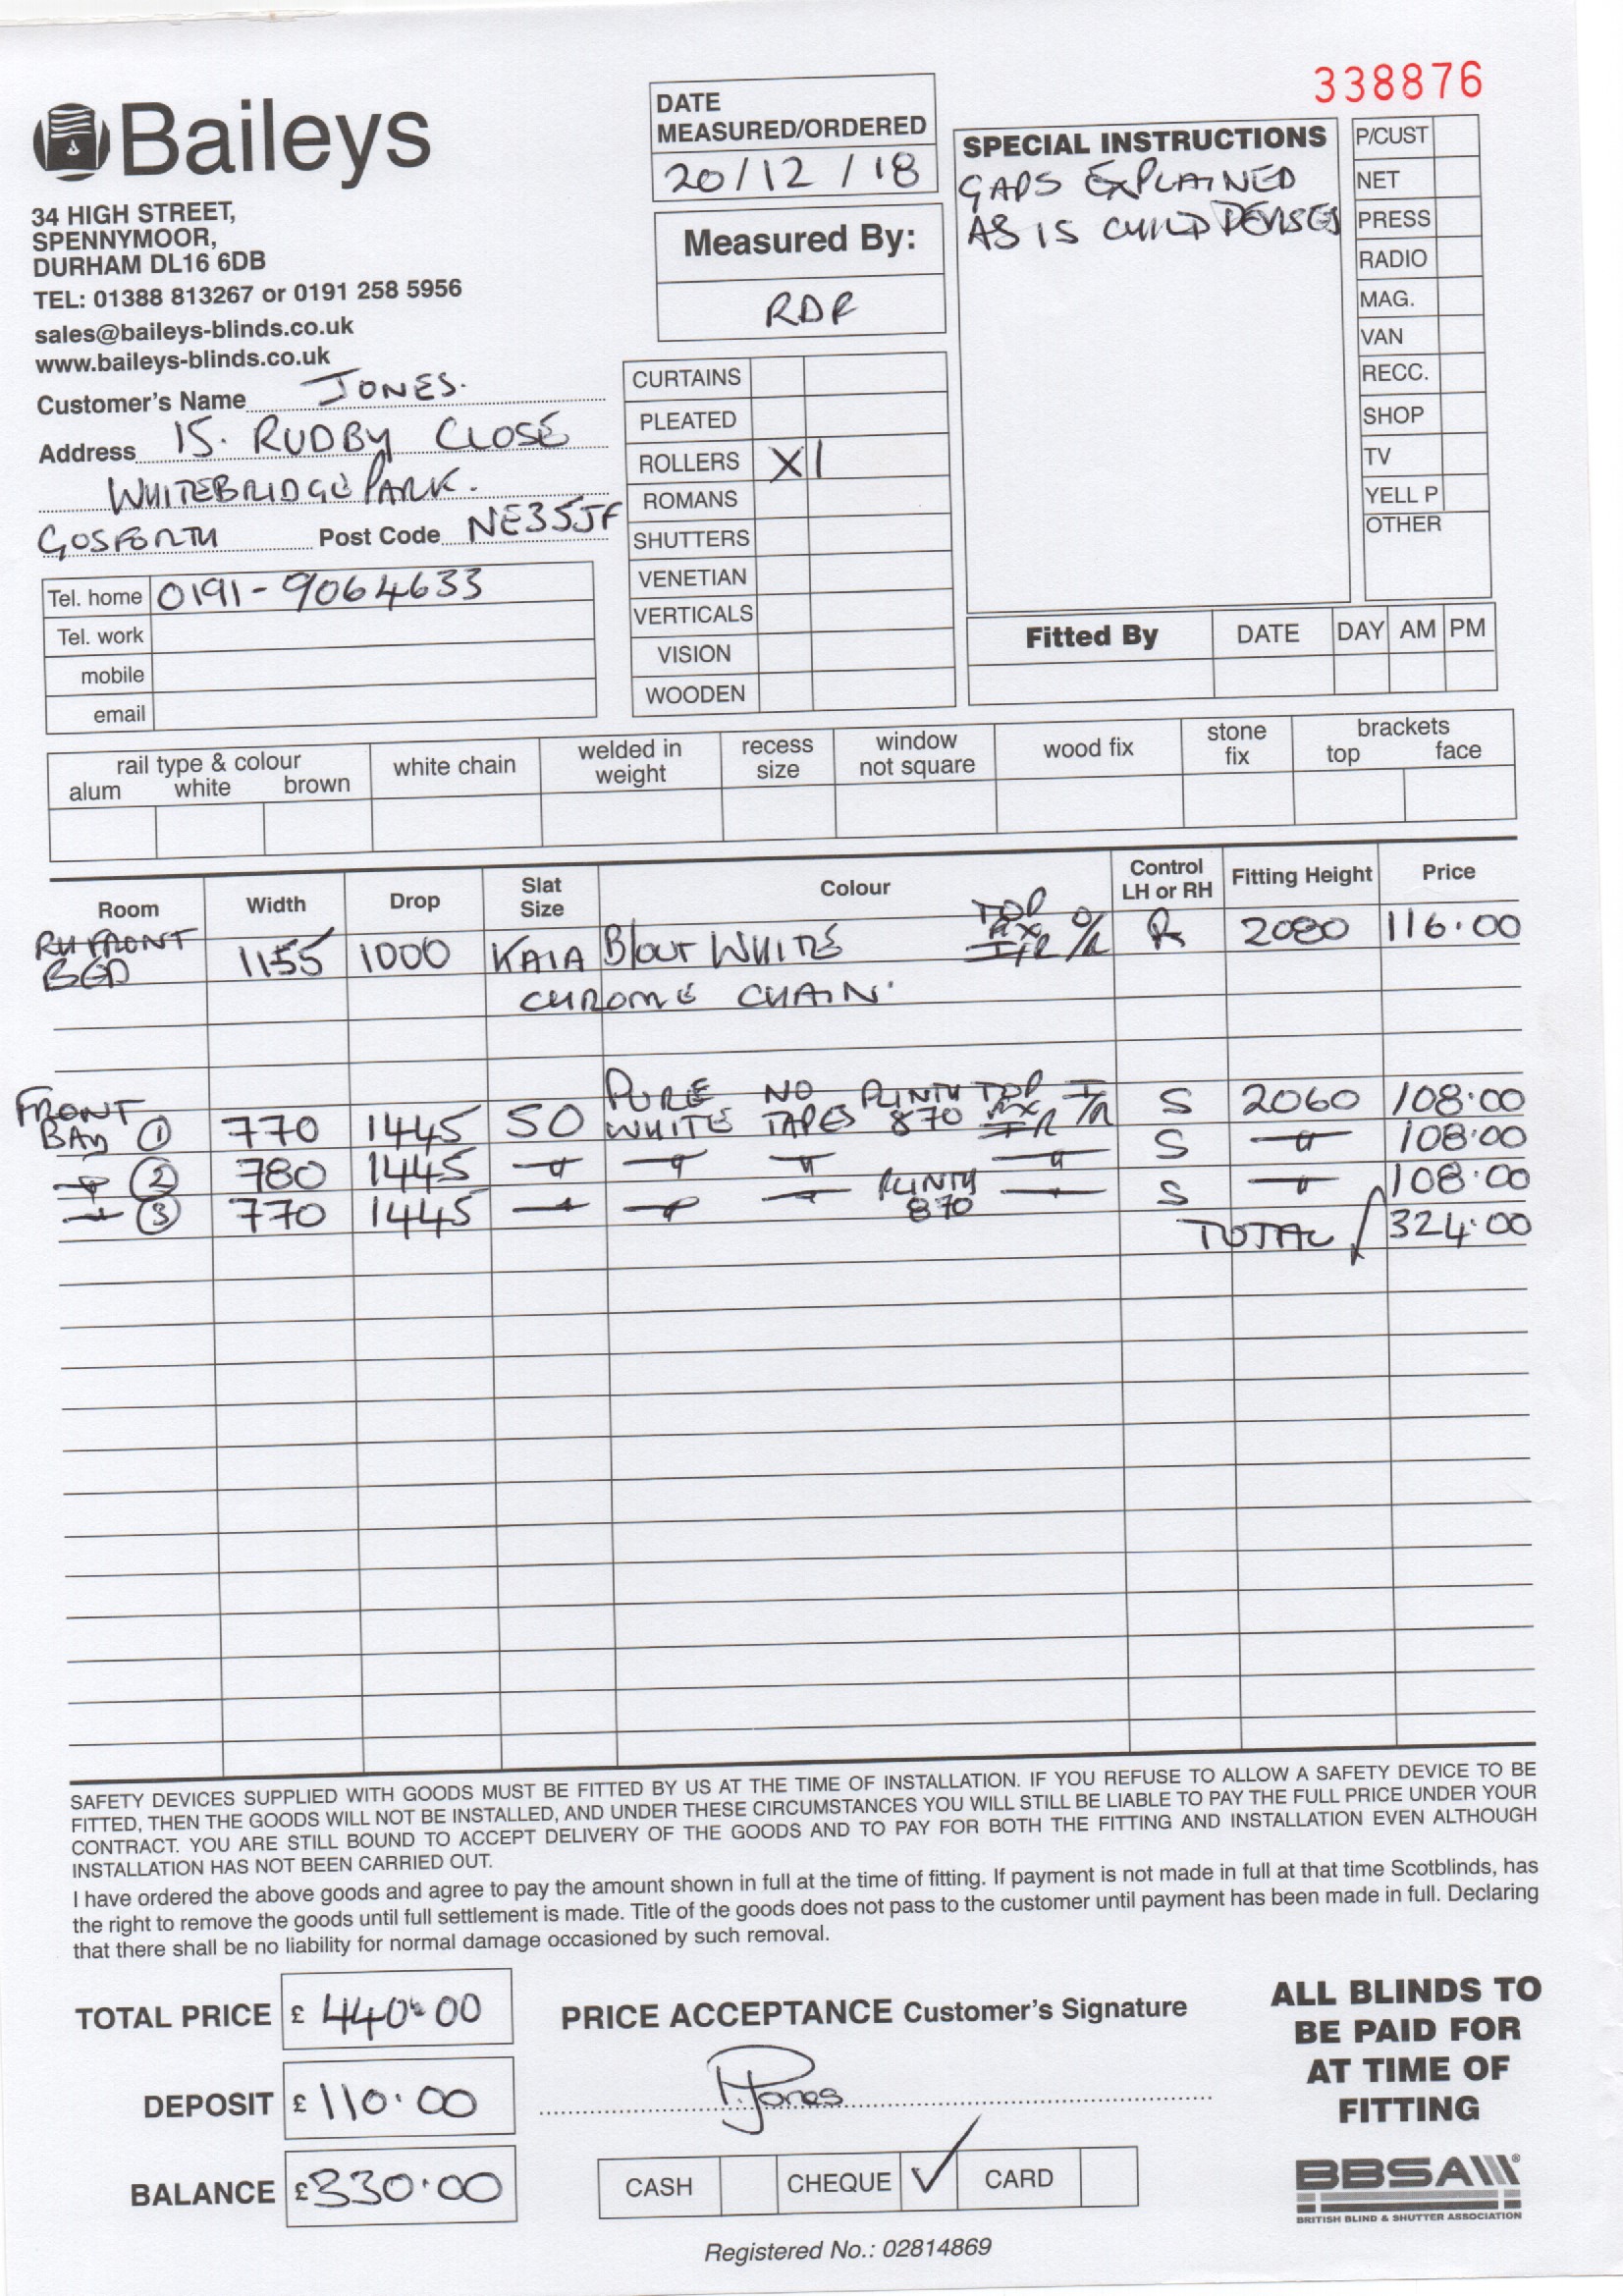 338876
Baileys
34 HIGH STREET,
SPENNYMOOR,
DURHAM DL16 6DB
TEL: 01388 813267 or 0191 258 5956
sales@baileys-blinds.co.uk
www.baileys-blinds.co.uk
Customer's Name JONES.
Address 15. RUDBY CLOSE
WHITEBRIDGE PARK.
GOSFORTH Post Code NE35JF
Tel. home 0191-9064633
Tel. work
mobile
email
DATE
MEASURED/ORDERED
20/12/18
Measured By:
RDR
CURTAINS
PLEATED
ROLLERS X1
ROMANS
SHUTTERS
VENETIAN
VERTICALS
VISION
WOODEN
SPECIAL INSTRUCTIONS
GAPS EXPLAINED
AS IS CHILD
P/CUST
NET
PRESS
RADIO
MAG.
VAN
RECC.
SHOP
TV
YELL P
OTHER
Fitted By DATE DAY AM PM
rail type & colour
alum white brown
white chain
welded in
weight
recess
size
window
not square
wood fix
stone
fix
brackets
top face
Room Width Drop Slat Size Colour Control LH or RH Fitting Height Price
RH FRONT BED 1155 1000 KAIA B/OUT WHITE TOP FIX O/R R 2080 116.00
CHROME CHAIN.
FRONT BAY 1 770 1445 50 PURE WHITE NO TAPES PLINTH 870 TOP FIX I/R S 2060 108.00
2 780 1445 S 108.00
3 770 1445 PLINTH 870 S 108.00
TOTAL 324.00
SAFETY DEVICES SUPPLIED WITH GOODS MUST BE FITTED BY US AT THE TIME OF INSTALLATION. IF YOU REFUSE TO ALLOW A SAFETY DEVICE TO BE
FITTED, THEN THE GOODS WILL NOT BE INSTALLED, AND UNDER THESE CIRCUMSTANCES YOU WILL STILL BE LIABLE TO PAY THE FULL PRICE UNDER YOUR
CONTRACT. YOU ARE STILL BOUND TO ACCEPT DELIVERY OF THE GOODS AND TO PAY FOR BOTH THE FITTING AND INSTALLATION EVEN ALTHOUGH
INSTALLATION HAS NOT BEEN CARRIED OUT.
I have ordered the above goods and agree to pay the amount shown in full at the time of fitting. If payment is not made in full at that time Scotblinds, has
the right to remove the goods until full settlement is made. Title of the goods does not pass to the customer until payment has been made in full. Declaring
that there shall be no liability for normal damage occasioned by such removal.
TOTAL PRICE £ 440.00
DEPOSIT £ 110.00
BALANCE £ 330.00
PRICE ACCEPTANCE Customer's Signature
P. Jones
CASH CHEQUE ✓ CARD
ALL BLINDS TO
BE PAID FOR
AT TIME OF
FITTING
BBSA
BRITISH BLIND & SHUTTER ASSOCIATION
Registered No.: 02814869